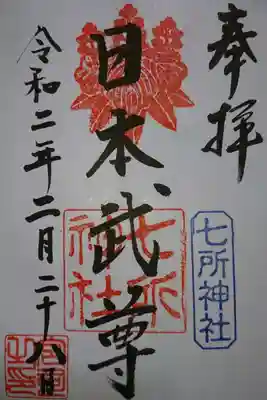 奉拝
七所神社
日本武尊
七所神社
令和二年二月二十八日